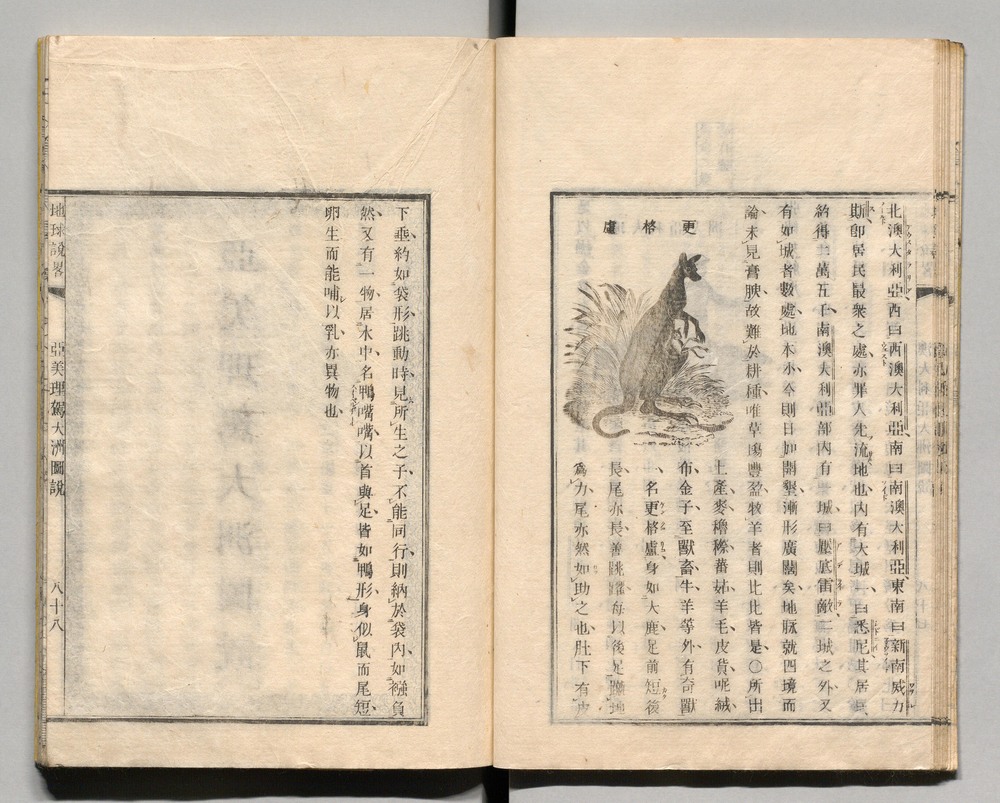 北澳大利亞西曰西澳大利亞南曰南澳大利亞東南曰新南威力
斯卽居民最衆之處亦罪人先流地也內有大城一曰悉尼其居民
約得十萬五千南澳大利亞部內有
城曰
底雷敵二城之外又
有如城者數處地本小今則日加開墾漸形廣闊矣地脉就四境而
論未見膏腴故難於耕種唯草場豐盈牧羊者則比比皆是〇所出
更格盧
土產麥穭穄蕃姑羊毛皮貨呢絨
布金子至獸畜牛羊等外有奇獸
一名更格盧身如大鹿足前短後
長尾亦長善跳躍每以後足
地
爲力尾亦然如助之也肚下有皮
下垂約如袋形跳動時見所生之子不能同行則納於袋內如襁負
然又有一物居水中名鴨嘴嘴以首與足皆如鴨形身似鼠而尾短
卵生而能哺以乳亦異物也
地球說畧
亞美理駕大洲圖說
八十八